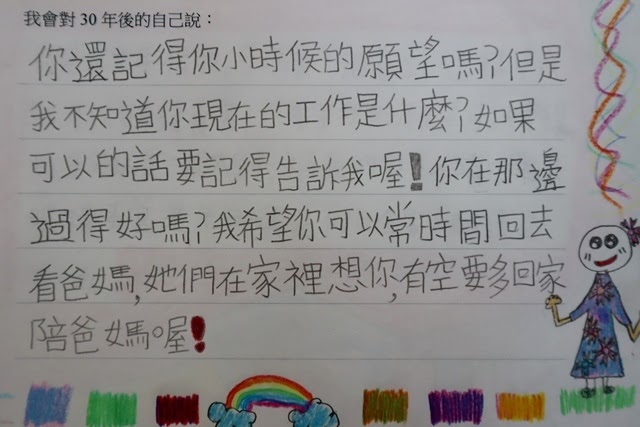 我會對 30 年後的自己說：
你還記得你小時候的願望嗎?但是
我不知道你現在的工作是什麼?如果
可以的話要記得告訴我喔!你在那邊
過得好嗎?我希望你可以常時間回去
看爸媽,她們在家裡想你,有空要多回家
陪爸媽喔!